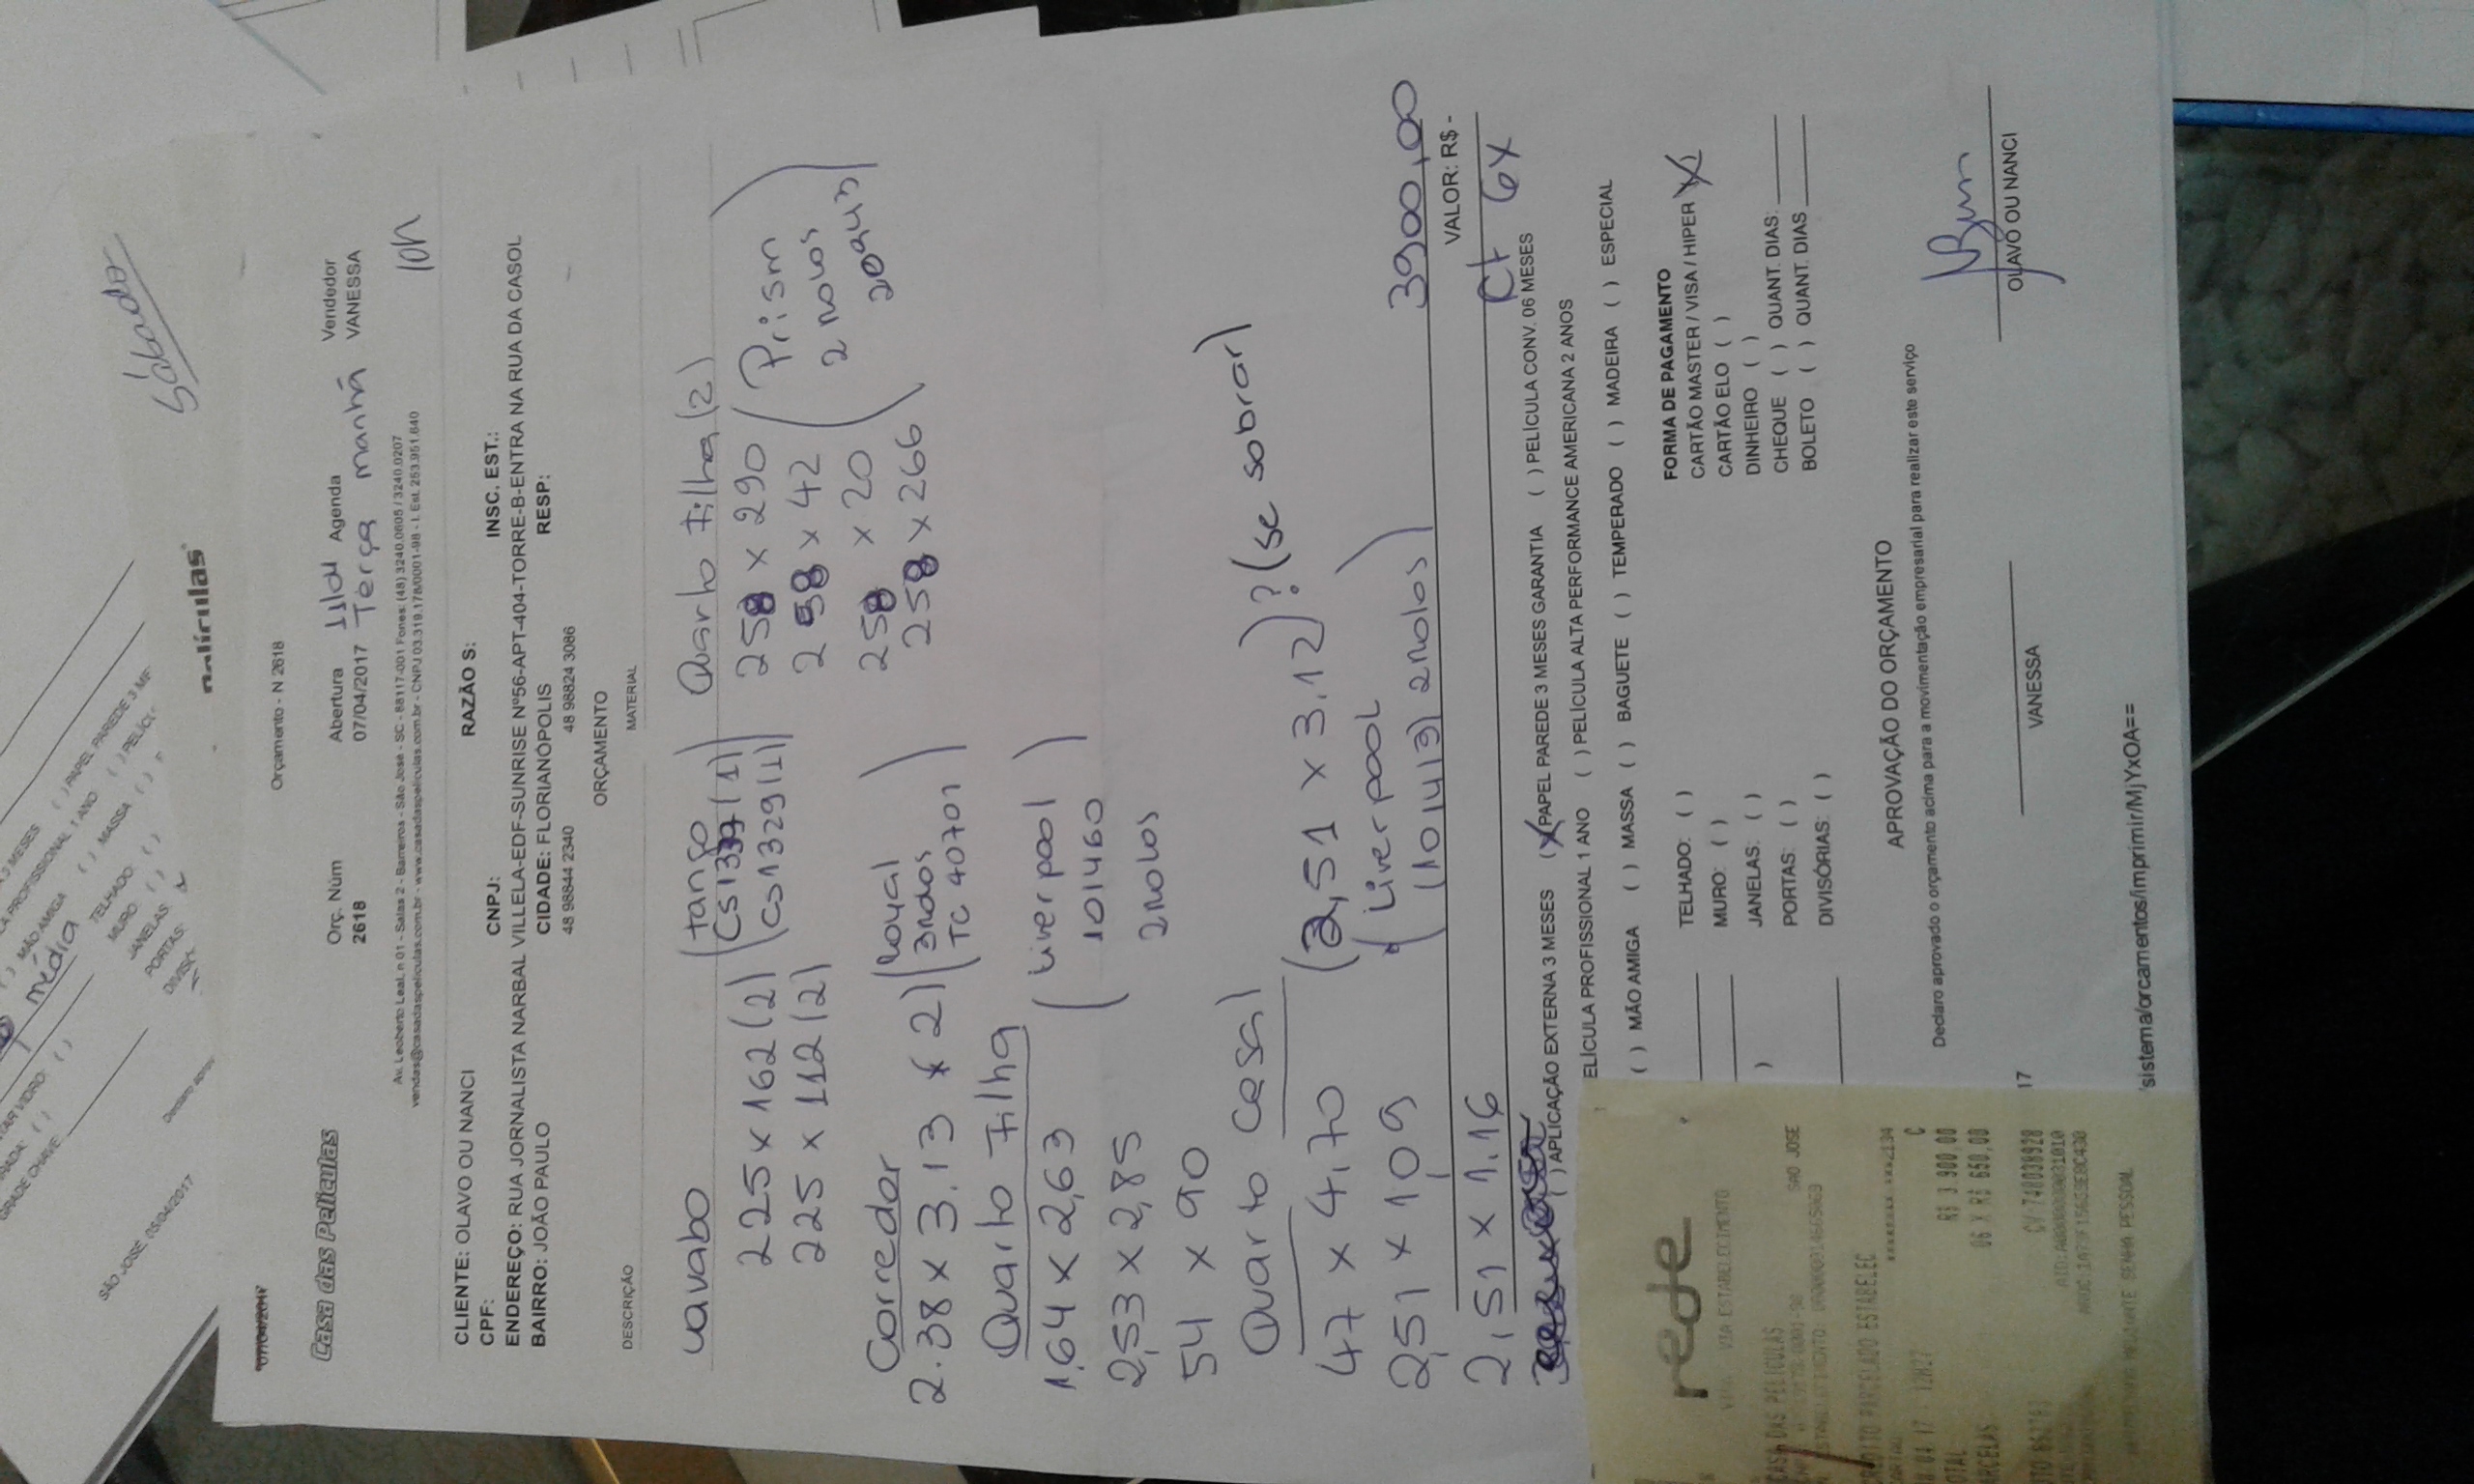 Sábado
películas
Orçamento - N 2618
07/04/2017
Casa das Películas
Orç. Núm
2618
Abertura
07/04/2017
11/04 Agenda
Terça manhã
Vendedor
VANESSA
10h
Av. Leoberto Leal, n 01 - Salas 2 - Barreiros - São José - SC - 88117-001 Fones: (48) 3240.0605 / 3240.0207
vendas@casadaspeliculas.com.br - www.casadaspeliculas.com.br - CNPJ 03.319.178/0001-98 - I. Est. 253.951.640
CLIENTE: OLAVO OU NANCI
RAZÃO S:
CPF:
CNPJ:
INSC. EST.:
ENDEREÇO: RUA JORNALISTA NARBAL VILLELA-EDF-SUNRISE Nº56-APT-404-TORRE-B-ENTRA NA RUA DA CASOL
BAIRRO: JOÃO PAULO
CIDADE: FLORIANÓPOLIS
RESP:
48 98844 2340
48 98824 3086
ORÇAMENTO
DESCRIÇÃO
MATERIAL
Lavabo
225 x 162 (2)
225 x 112 (2)
(tango)
(1)
(CS1329 (1)
Quarto Filha (2)
258 x 290
258 x 42
258 x 20
258 x 266
(Prism
2 rolos
Corredor
2.38 x 3.13 x 2)
(Royal
3 rolos
TC 40701
Quarto Filha
1,64 x 2,63
2,53 x 2,85
54 x 90
(Liverpool)
101460
2 rolos
Quarto casal
47 x 4,70
2,51 x 109
2,51 x 1.16
(2,51 x 3.12)? (se sobrar)
(Liverpool
(101413) 2 rolos)
3900,00
VALOR: R$ -
Ct 6x
( ) APLICAÇÃO EXTERNA 3 MESES (X) PAPEL PAREDE 3 MESES GARANTIA ( ) PELÍCULA CONV. 06 MESES
ELÍCULA PROFISSIONAL 1 ANO ( ) PELÍCULA ALTA PERFORMANCE AMERICANA 2 ANOS
( ) MÃO AMIGA ( ) MASSA ( ) BAGUETE ( ) TEMPERADO ( ) MADEIRA ( ) ESPECIAL
TELHADO: ( )
MURO: ( )
JANELAS: ( )
PORTAS: ( )
DIVISÓRIAS: ( )
FORMA DE PAGAMENTO
CARTÃO MASTER / VISA / HIPER (X)
CARTÃO ELO ( )
DINHEIRO ( )
CHEQUE ( ) QUANT. DIAS:
BOLETO ( ) QUANT. DIAS
APROVAÇÃO DO ORÇAMENTO
Declaro aprovado o orçamento acima para a movimentação empresarial para realizar este serviço
17
VANESSA
OLAVO OU NANCI
/sistema/orcamentos/imprimir/MjYxOA==
rede
VIA ESTABELECIMENTO
CASA DAS PELICULAS
SAO JOSE
CREDITO PARCELADO ESTABELEC
R$ 3 900,00
06 X R$ 650,00
média
SÃO JOSÉ, 05/04/2017